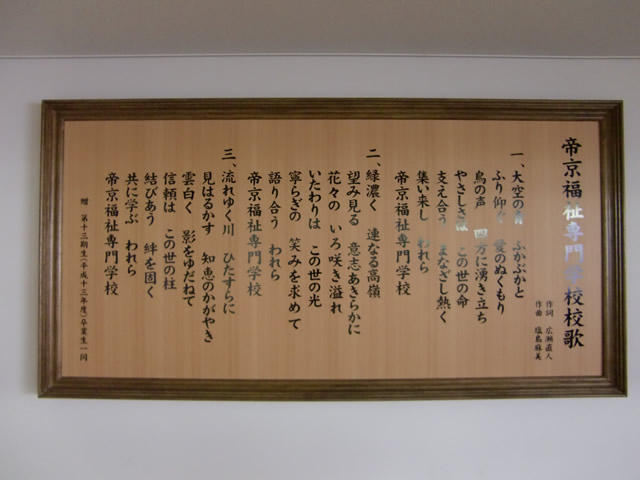 帝京福祉専門学校校歌
作詞 広瀬直人
作曲 塩島麻美
一、大空の青 ふかぶかと
ふり仰ぐ 愛のぬくもり
鳥の声 四方に湧き立ち
やさしさは この世の命
支え合う まなざし熱く
集い来し われら
帝京福祉専門学校
二、緑濃く 連なる高嶺
望み見る 意志あきらかに
花々の いろ咲き溢れ
いたわりは この世の光
寧らぎの 笑みを求めて
語り合う われら
帝京福祉専門学校
三、流れゆく川 ひたすらに
見はるかす 知恵のかがやき
雲白く 影をゆだねて
信頼は この世の柱
結びあう 絆を固く
共に学ぶ われら
帝京福祉専門学校
贈 第十三期生(平成十三年度)卒業生一同